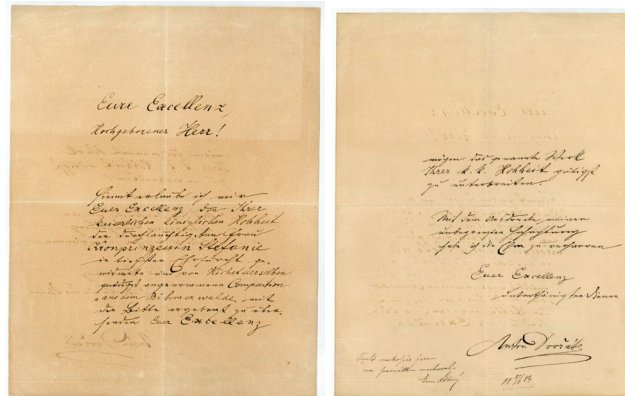 Eure Excellenz,
Hochgeborener Herr!
Hiemit erlaube ich mir
Euer Excellenz die Ihrer
kaiserlichen königlichen Hoheit
der durchlauchtigsten Frau
Kronprinzessin Stefanie
in tiefster Ehrfurcht ge-
widmete und von Höchstderselben
gütigst angenommene Composition
"aus dem Böhmerwalde" mit
der Bitte ergebenst zu über-
senden Euer Excellenz
mögen das genannte Werk
Ihrer k. k. Hohheit gütigst
zu unterbreiten.
Mit dem Ausdrucke meiner
unbegrenzten Hochachtung
habe ich die Ehre zu verharren
Euer Excellenz
unterthänigster Diener
Anton Dvořák